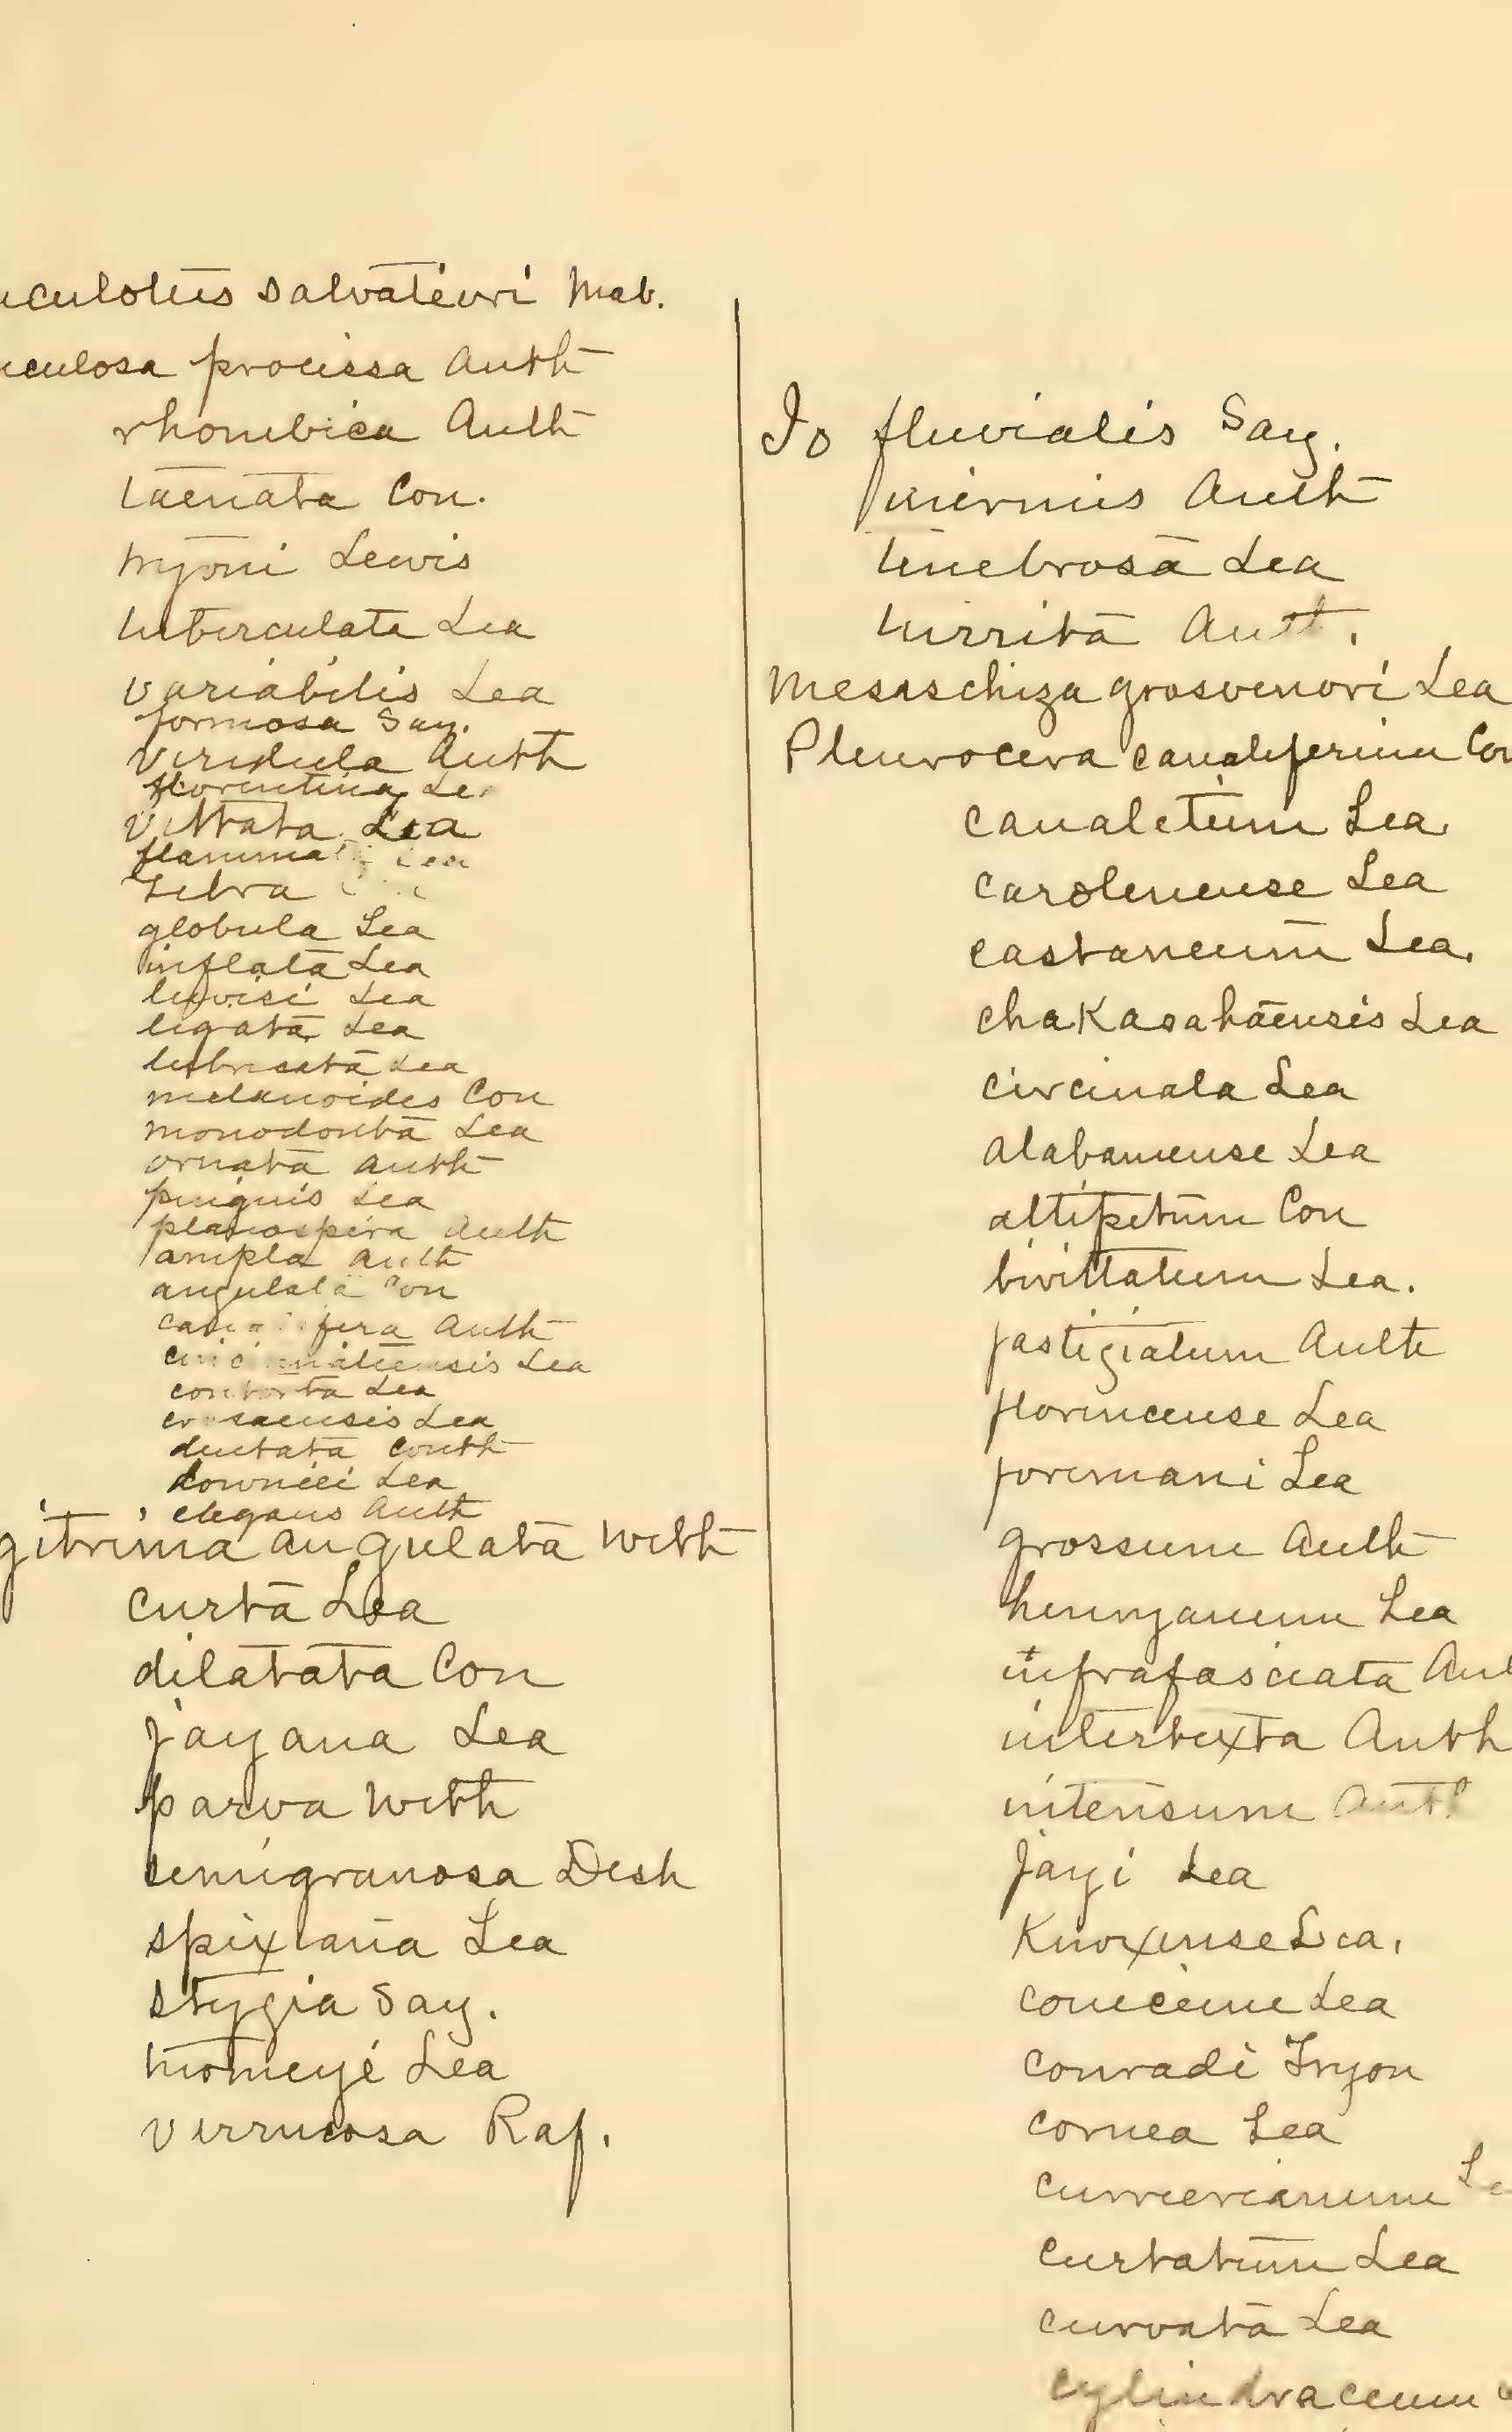 uculotus salvateuri Mab.
uculosa procissa Anth
rhombica Anth
taenata Con.
tryoni Lewis
tuberculata Lea
variabilis Lea
formosa Say.
viridula Anth
florentina Le
vittata Lea
flammata Lea
zebra
globula Lea
inflata Lea
lewisi Lea
ligata Lea
Lea
melanoides Con
monodonta Lea
ornata Anth
pinguis Lea
planospira Anth
ampla Anth
angulata Con
Anth
Lea
contorta Lea
coosaensis Lea
dentata Couth
downiei Lea
elegans Anth
gitrema angulata Weth
curta Lea
dilatata Con
jayana Lea
parva Weth
semigranosa Desh
spixiana Lea
stygia Say.
tuomeyi Lea
verrucosa Raf.
Io fluvialis Say.
inermis Anth
tenebrosa Lea
turrita Anth.
Mesaschiza grosvenori Lea
Pleurocera canaliferum Con
canaletum Lea
carolenense Lea
castaneum Lea.
chakasahaensis Lea
circinata Lea
alabamense Lea
altipetum Con
bivittatum Lea.
fastigiatum Anth
florencense Lea
foremani Lea
grossum Anth
henryanum Lea
infrafasciata Ant
intertexta Anth
intensum Anth
jayi Lea
Knoxense Lea.
conicum Lea
conradi Tryon
cornea Lea
currierianum Le
curtatum Lea
curvata Lea
cylindraceum